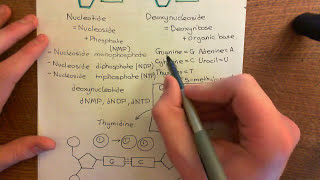 Nucleotide
= Nucleoside
+ Phosphate
(NMP)
Deoxynucleoside
= Deoxyribose
+ Organic base
- Nucleoside monophosphate
- Nucleoside diphosphate (NDP)
- Nucleoside triphosphate (NTP)
Guanine = G Adenine = A
= C Uracil = U
= T
deoxynucleotide
dNMP, dNDP, dNTP
Thymidine
G C